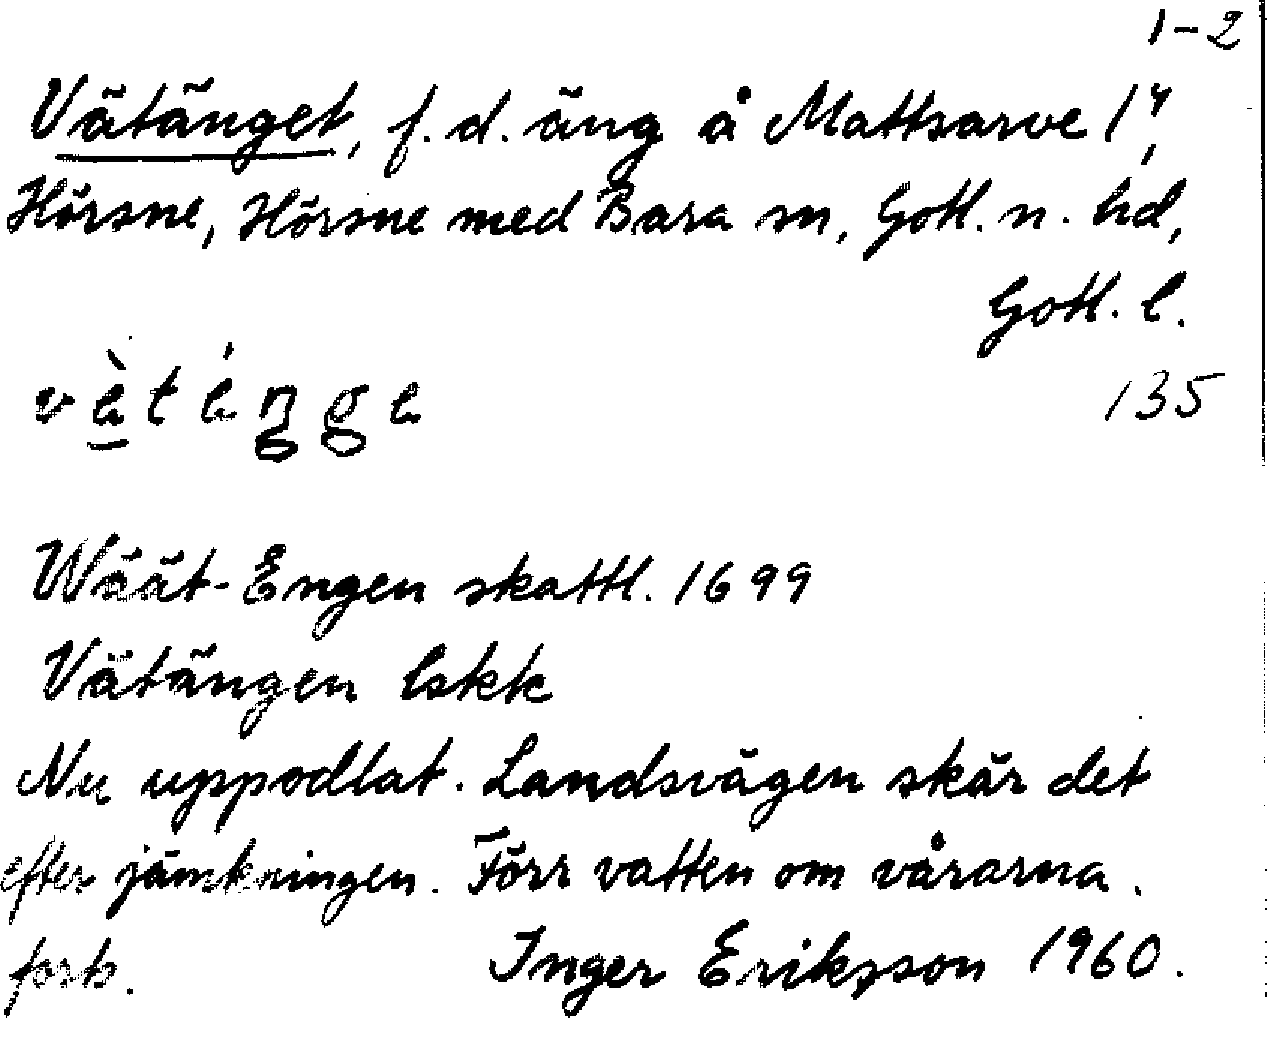 1-2
Vätänget, f.d. äng å Mattsarve 1⁴,
Hörsne, Hörsne med Bara sn, Gotl. n. hd,
Gotl. l.
135
Wäät-Engen skattl. 1699
Vätängen lskk
Nu uppodlat. Landsvägen skär det
efter jämkningen. Förr vatten om vårarna.
forts. Inger Eriksson 1960.